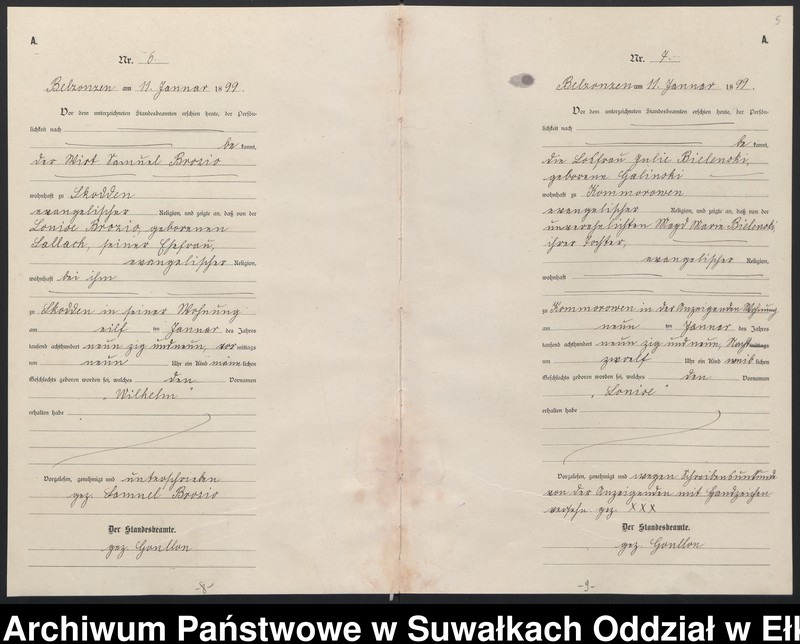 A.
Nr. 6.
Belzonzen am 11 Januar 1899.
Vor dem unterzeichneten Standesbeamten erschien heute, der Persön-
lichkeit nach
be kannt,
der Wirt Samuel Brozio
wohnhaft zu Skodden
evangelischer Religion, und zeigte an, daß von der
Louise Brozio, geborenen
Sallach, seiner Ehefrau,
evangelischer Religion,
wohnhaft bei ihm
zu Skodden in seiner Wohnung
am eilf ten Januar des Jahres
tausend achthundert neun zig und neun, vor mittags
um neun Uhr ein Kind männ lichen
Geschlechts geboren worden sei, welches den Vornamen
„Wilhelm“
erhalten habe
Vorgelesen, genehmigt und unterschrieben
gez. Samuel Brozio
Der Standesbeamte.
gez. Goullon
-8-
5
A.
Nr. 7.
Belzonzen am 11. Januar 1899.
Vor dem unterzeichneten Standesbeamten erschien heute, der Persön-
lichkeit nach
be kannt,
die Losfrau Julie Bielenski,
geborene Galinski
wohnhaft zu Kommorowen
evangelischer Religion, und zeigte an, daß von der
unverehelichten Magd Marie Bielenski,
ihrer Tochter,
evangelischer Religion,
wohnhaft
zu Kommorowen in der Anzeigenden Wohnung
am neun ten Januar des Jahres
tausend achthundert neun zig und neun, Nachmittags
um zwoelf Uhr ein Kind weib lichen
Geschlechts geboren worden sei, welches den Vornamen
„Louise“
erhalten habe
Vorgelesen, genehmigt und wegen Schreibensunkunde
von der Anzeigenden mit Handzeichen
versehn gez. XXX
Der Standesbeamte.
gez. Goullon
-9-
Archiwum Państwowe w Suwałkach Oddział w Eł